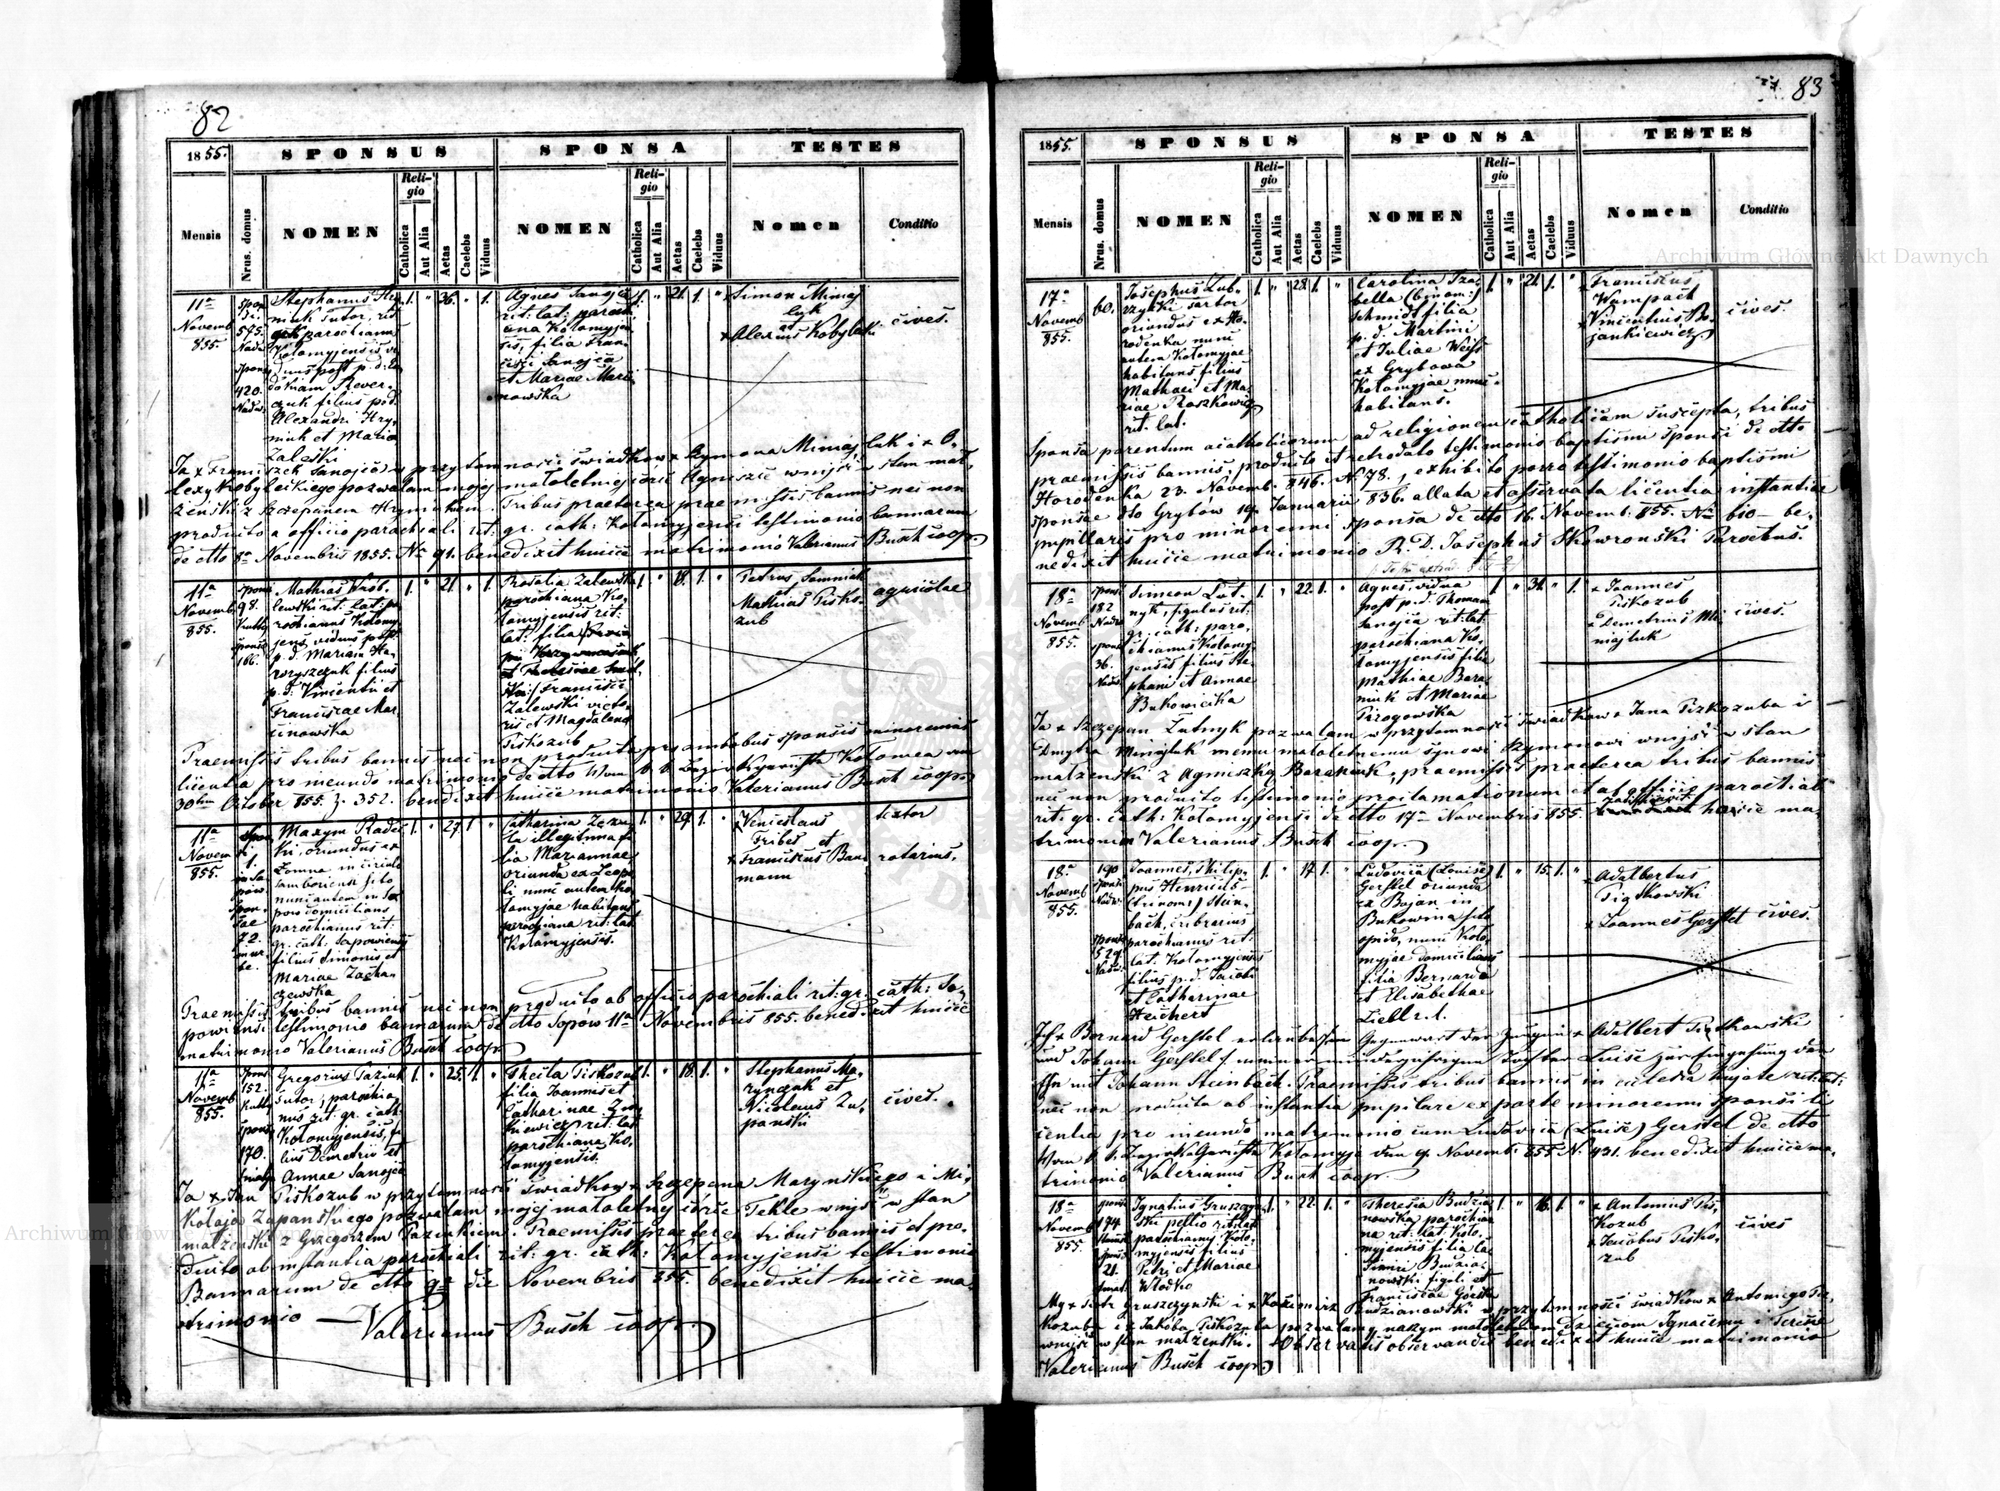 82
1855.
SPONSUS
SPONSA
TESTES
Mensis
Nrus. domus
NOMEN
Religio
Catholica
Aut Alia
Aetas
Caelebs
Viduus
NOMEN
Religio
Catholica
Aut Alia
Aetas
Caelebs
Viduus
Nomen
Conditio
11a
Novemb
855.
595.
420.
Stephanus Hry-
niuk Sutor, rit.
gr. parochianus
Kolomyjensis vi-
duus post p. d.
filius p. d.
Alexandri Hry-
niuk et Maria
Zaleski
1. " 26. " 1.
Agnes Sanojca
rit: lat: paroch
iana Kolomyjen
sis, filia Fran-
cisci Sanojca
et Mariae Mari
nowska
1. " 21. 1. "
Simon Mimaj
luk
et
Alexius Kobylecki
cives.
Ja x Franciszek Sanojca w przytomności świadków x Szymona Mimajluk i x A-
lexy Kobyleckiego pozwalam mojej małoletniej córce Agnieszce wnijść w stan mał-
żeński z Szczepanem Hryniukem. Tribus praeterea praemissis bannis nec non
producto a officio parochiali rit: gr. cath: Kolomyjensi testimonio bannorum
de dtto 8a Novembris 1855. No 91. benedixit huicce matrimonio Valerianus Busch coop.
11a
Novemb
855.
98.
166.
Mathias Wrób-
lewski rit: lat: pa
rochianus Kolomy-
jens viduus post
p. d. Mariam Ha-
raszczuk filius
p. d. Vincentii et
Franciscae Mar-
cinowska
1. " 21. " 1.
Rosalia Zalewska
parochiana Ko-
lomyjensis rit:
lat: filia
Francisci
Zalewski victo-
ris et Magdalena
Piskozub
1. " 18. 1. "
Petrus Semniuk
Mathias Pisko-
zub
agricolae
Praemissis tribus bannis nec non producta pro ambobus sponsis minorennis
licentia pro ineundo matrimonio de dtto Vom k. k. Bezirksgerichte Kolomea am
30ten October 855. Z. 352. benedixit huicce matrimonio Valerianus Busch coop.
11a
Novem
855.
1.
72.
Maxym Radec
ki, oriundus ex
Lomna in circulo
Samboriensi sito
nunc autem in So
pow domicilians
parochianus rit:
gr. cath: Sopowiensis
filius Simonis et
Mariae Zacha-
czewska
1. " 27. 1. "
Catharina Zozu-
la illegitima fi-
lia Mariannae
oriunda ex Leopo-
li nunc autem Ko-
lomyjae habitans
parochiana rit: lat
Kolomyjensis.
1. " 29. 1. "
Venceslaus
Fribes et
Franciscus Bau
mann
textor
rotarius.
Praemissis tribus bannis nec non producto ab officio parochiali rit: gr. cath: So-
powiensi testimonio bannorum de dtto Sopów 11a Novembris 855. benedixit huicce
matrimonio Valerianus Busch coop.
11a
Novemb
855.
152.
170.
Gregorius Paziuk
sutor, parochia-
nus rit: gr. cath:
Kolomyjensis, fi
lius Demetrii et
Annae Sanojca
1. " 25. 1. "
Thecla Piskozub
filia Joannis et
Catharinae
rit: lat
parochiana Ko-
lomyjensis.
1. " 18. 1. "
Stephanus Ma-
rynczuk et
Nicolaus Za-
panski
cives.
Ja x Jan Piskozub w przytomności świadków x Szczepana Maryńskiego i Mi-
kołaja Zapańskiego pozwalam mojej małoletniej córce Tekle wnijść w stan
małżeński z Grzegorzem Paziukiem. Praemissis praeterea tribus bannis et pro-
ducto ab instantia parochiali rit: gr. cath: Kolomyjensi testimonio
Bannorum de dtto 9a Novembris 855. benedixit huicce ma-
trimonio — Valerianus Busch coop.
83
1855.
SPONSUS
SPONSA
TESTES
Mensis
Nrus. domus
NOMEN
Religio
Catholica
Aut Alia
Aetas
Caelebs
Viduus
NOMEN
Religio
Catholica
Aut Alia
Aetas
Caelebs
Viduus
Nomen
Conditio
17a
Novemb
855.
60.
Josephus Lub-
czyński sartor
oriundus ex Ho-
rodenka nunc
autem Kolomyjae
habitans filius
Mathaei et Ma-
riae Raszkowicz
rit. lat.
1. " 28. 1. "
Carolina Iza-
bella (binom:)
Schmidt filia
p. d. Martini
et Juliae Weiss
ex Grybowa
Kolomyjae nunc
habitans.
1. " 21. 1. "
Franciscus
Wampach
Vincentius Bo-
jankiewicz
cives.
Sponsa parentum acatholicorum ad religionem catholicam suscepta, tribus
praemissis bannis, producto et retrodato testimonio baptismi sponsi de dtto
Horodenka 23. Novemb. 846. No 78, exhibito porro testimonio baptismi
sponsae dto Grybów 19. Januarii 836. allata et asservata licentia instantiae
pupillaris pro minorenni sponsa de dtto 16. Novemb. 855. No 610 be-
nedixit huicce matrimonio R. D. Josephus Skowronski Parochus.
18a
Novemb
855.
182
36.
Simeon Lut-
nyk, figulus rit:
gr. cath: paro-
chianus Kolomy-
jensis filius Ste-
phani et Annae
Bukowiecka
1. " 22. 1. "
Agnes, vidua
post p. d. Thomam
Sanojca rit: lat:
parochiana Ko-
lomyjensis filia
Mathiae Bara-
niuk et Mariae
Pirogowska
1. " 31. " 1.
x Joannes
Piskozub
x Demetrius Mi-
majluk
cives.
Ja x Szczepan Lutnyk pozwalam w przytomności świadków x Jana Piskozuba i
Dmytra Mimajluk memu małoletniemu synowi Szymonowi wnijść w stan
małżeński z Agnieszką Baraniuk, praemissis praeterea tribus bannis
nec non producto testimonio proclamationum et ab officio parochiali
rit: gr. cath: Kolomyjensi de dtto 17a Novembris 855. huicce ma-
trimonio Valerianus Busch coop.
18a
Novemb
855.
190
529
Joannes, Philip-
pus Henricus
(trinom:) Stein-
bach, cribrarius
parochianus rit:
lat. Kolomyjensis
filius p. d. Jacobi
et Catharinae
Heichert
1. " 17. 1. "
Ludovica (Louise)
Gerstel oriunda
ex Bojan in
Bukowina sito
opido, nunc Kolo-
myjae domicilians
filia Bernarda
et Elisabethae
Liebl r. l.
1. " 15. 1. "
x Adalbertus
Piątkowski
x Joannes Gerstel
cives.
Ich x Bernard Gerstel erlaube in Gegenwart der Zeugen x Adalbert Piątkowski
und Johann Gerstel meiner minderjährigen Tochter Louise zur Eingehung der
Ehe mit Johann Steinbach. Praemissis tribus bannis in ecclesia hujate rit: lat:
nec non producta ab instantia pupilari ex parte minorenni sponsi li
centia pro ineundo matrimonio cum Ludovica (Luise) Gerstel de dtto
Vom k. k. Bezirks Gerichte Kolomyja den 9. Novemb. 855 N. 431. benedixit huicce ma-
trimonio Valerianus Busch coop.
18a
Novemb
855.
194
21.
Ignatius Gruszczyn
ski pellio rit: lat
parochianus Kolo-
myjensis filius
Petri et Mariae
Wlodko
1. " 22. 1. "
Theresia Budzia
nowska parochia
na rit: lat. Kolo-
myjensis filia Ca-
simiri Budzia-
nowski figuli et
Franciscae Górska
1. " 16. 1. "
x Antonius Pis-
kozub
x Jacobus Pisko-
zub
cives
My x Piotr Gruszczyński i x Kazimierz Budzianowski w przytomności świadków x Antoniego Pis-
kozuba i x Jakóba Piskozuba pozwalamy naszym małoletnim dzieciom Ignacemu i Teresie
wnijść w stan małżeński. Observatis observandis benedixit huicce matrimonio
Valerianus Busch coop.
Archiwum Główne Akt Dawnych
Archiwum Główne Akt Dawnych